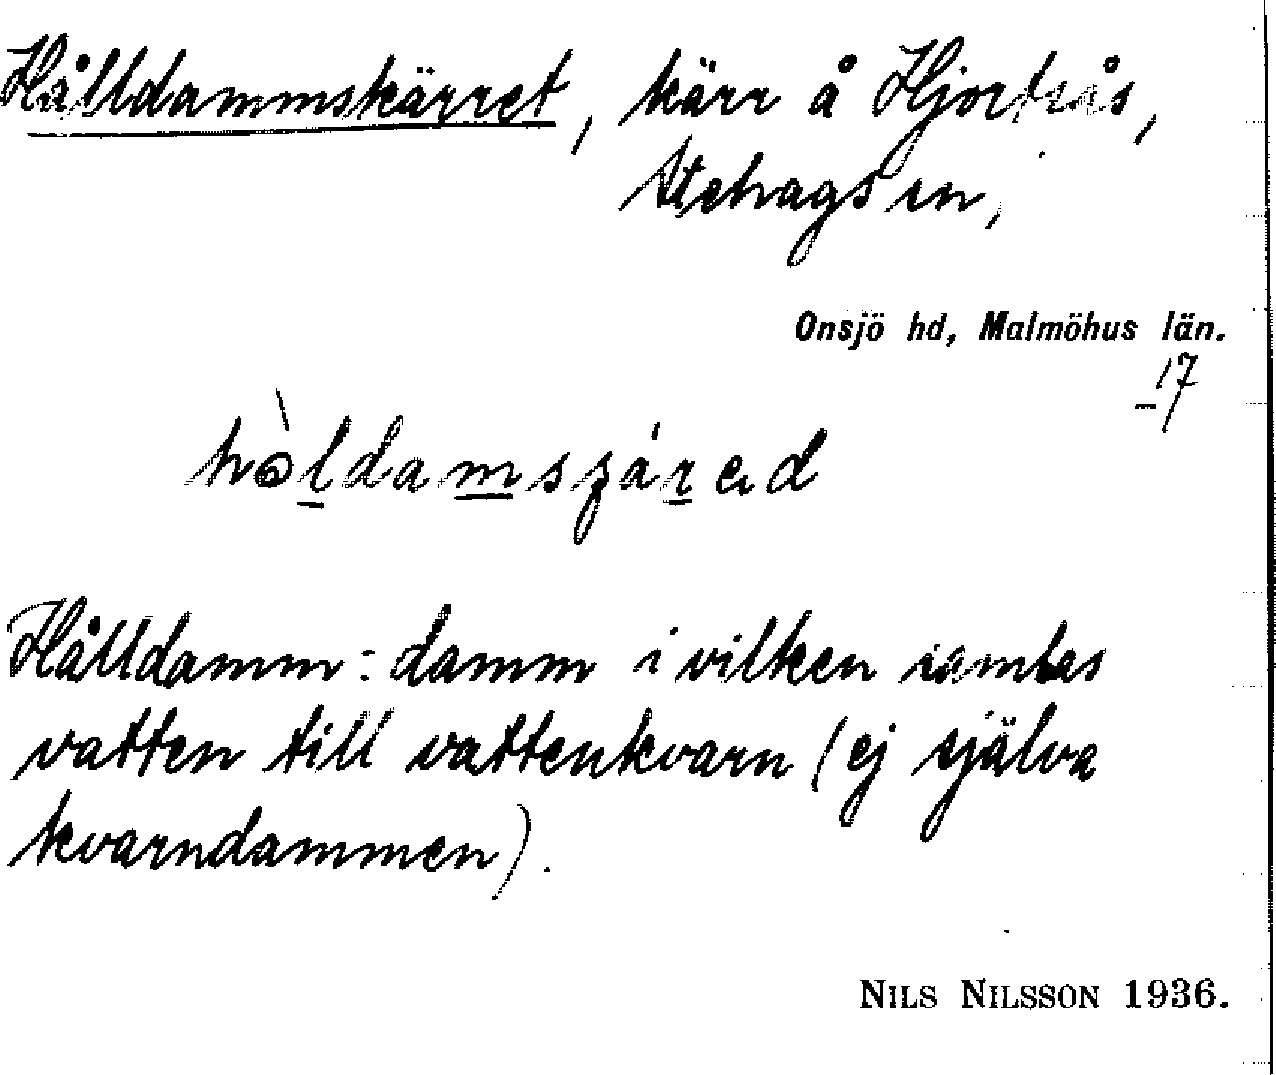 Hålldammskärret, kärr å Hjortsås,
Stehags sn,
Onsjö hd, Malmöhus län.
17
Hålldamm: damm i vilken samlas
vatten till vattenkvarn (ej själva
kvarndammen).
NILS NILSSON 1936.